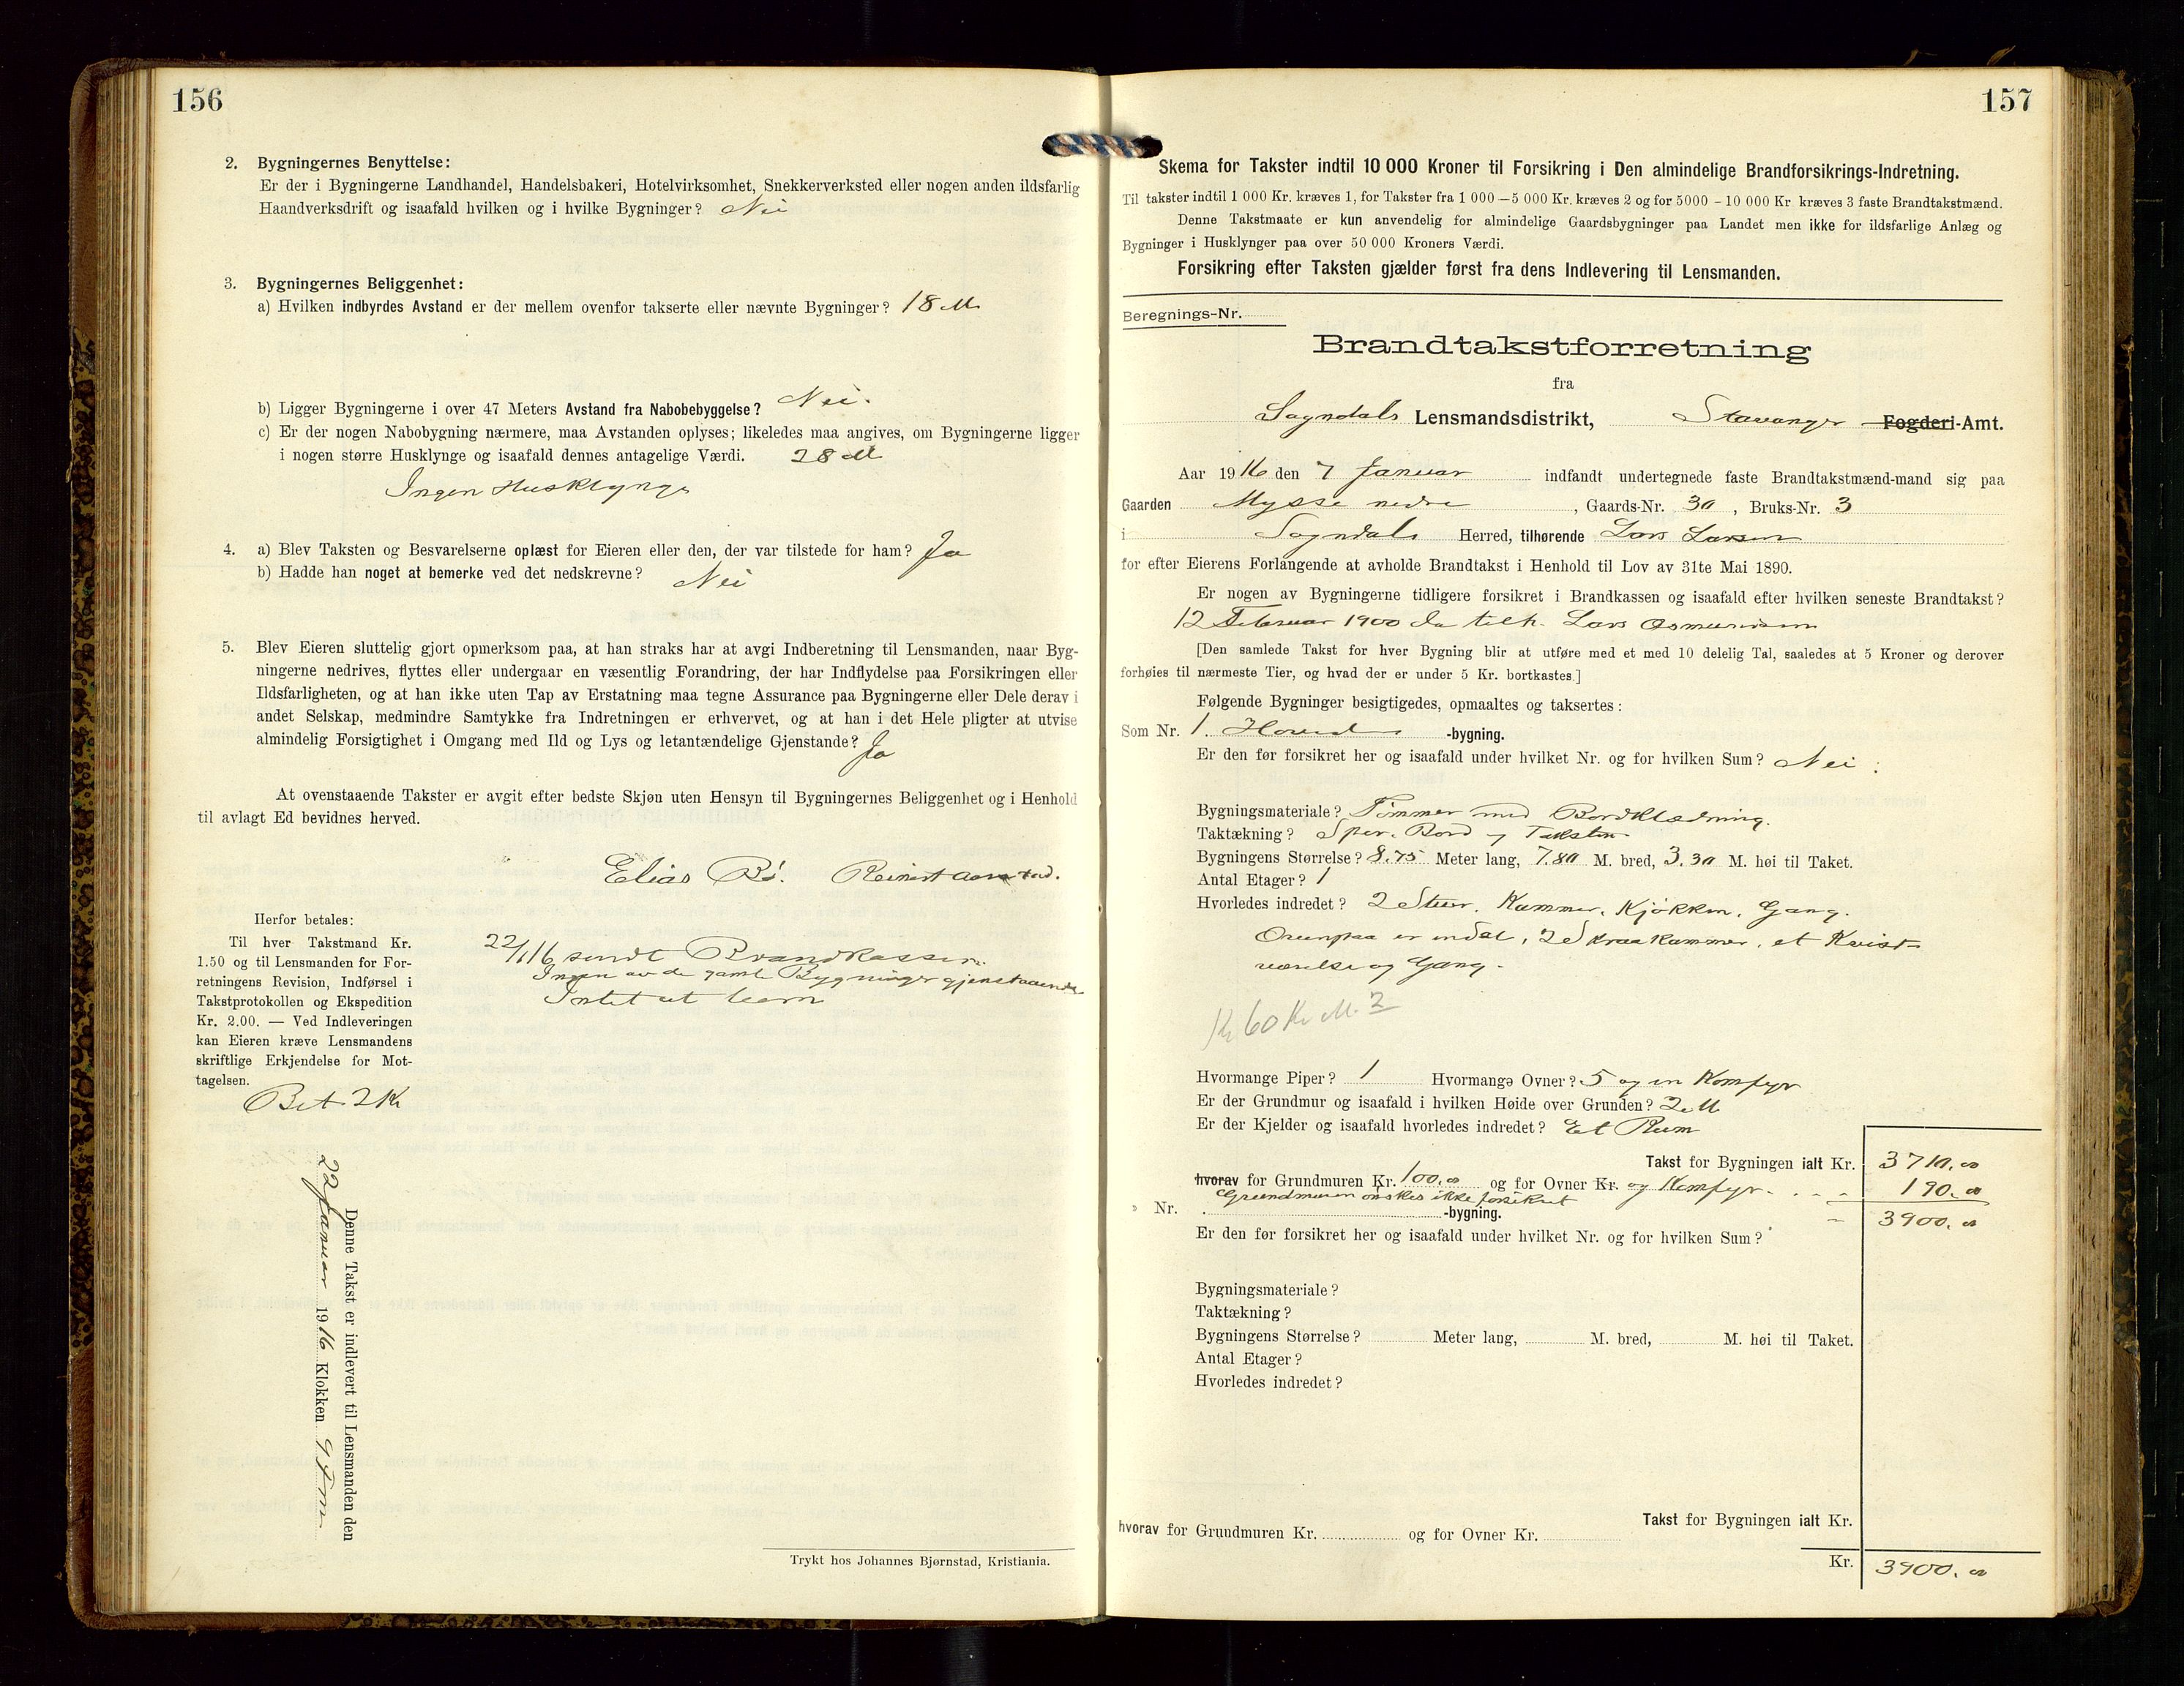 156
2. Bygningernes Benyttelse:
Er der i Bygningerne Landhandel, Handelsbakeri, Hotelvirksomhet, Snekkerverksted eller nogen anden ildsfarlig
Haandverksdrift og isaafald hvilken og i hvilke Bygninger? Nei
3. Bygningernes Beliggenhet:
a) Hvilken indbyrdes Avstand er der mellem ovenfor takserte eller nævnte Bygninger? 18 M
b) Ligger Bygningerne i over 47 Meters Avstand fra Nabobebyggelse? Nei.
c) Er der nogen Nabobygning nærmere, maa Avstanden oplyses; likeledes maa angives, om Bygningerne ligger
i nogen større Husklynge og isaafald dennes antagelige Værdi. 28 M
Ingen Husklynge
4. a) Blev Taksten og Besvarelserne oplæst for Eieren eller den, der var tilstede for ham? Ja
b) Hadde han noget at bemerke ved det nedskrevne? Nei
5. Blev Eieren sluttelig gjort opmerksom paa, at han straks har at avgi Indberetning til Lensmanden, naar Byg-
ningerne nedrives, flyttes eller undergaar en væsentlig Forandring, der har Indflydelse paa Forsikringen eller
Ildsfarligheten, og at han ikke uten Tap av Erstatning maa tegne Assurance paa Bygningerne eller Dele derav i
andet Selskap, medmindre Samtykke fra Indretningen er erhvervet, og at han i det Hele pligter at utvise
almindelig Forsigtighet i Omgang med Ild og Lys og letantændelige Gjenstande? Ja
At ovenstaaende Takster er avgit efter bedste Skjøn uten Hensyn til Bygningernes Beliggenhet og i Henhold
til avlagt Ed bevidnes herved.
Elias Rø. Reinert
Herfor betales:
Til hver Takstmand Kr.
1.50 og til Lensmanden for For-
retningens Revision, Indførsel i
Takstprotokollen og Ekspedition
Kr. 2.00. — Ved Indleveringen
kan Eieren kræve Lensmandens
skriftlige Erkjendelse for Mot-
tagelsen.
Bet. 2 Kr
22/1 16 sendt Brandkassen.
Ingen av de gamle Bygninger gjenstaaende
Intet at
Denne Takst er indlevert til Lensmanden den
22 Januar 1916 Klokken 9 Fm
Trykt hos Johannes Bjørnstad, Kristiania.
157
Skema for Takster indtil 10 000 Kroner til Forsikring i Den almindelige Brandforsikrings-Indretning.
Til takster indtil 1 000 Kr. kræves 1, for Takster fra 1 000 — 5 000 Kr. kræves 2 og for 5000 - 10 000 Kr. kræves 3 faste Brandtakstmænd.
Denne Takstmaate er kun anvendelig for almindelige Gaardsbygninger paa Landet men ikke for ildsfarlige Anlæg og
Bygninger i Husklynger paa over 50 000 Kroners Værdi.
Forsikring efter Taksten gjælder først fra dens Indlevering til Lensmanden.
Beregnings-Nr.
Brandtakstforretning
fra
Sogndals Lensmandsdistrikt, Stavanger Fogderi-Amt.
Aar 1916 den 7 Januar indfandt undertegnede faste Brandtakstmænd-mand sig paa
Gaarden Mysse nedre, Gaards-Nr. 30, Bruks-Nr. 3
i Sogndals Herred, tilhørende Lars Larsen
for efter Eierens Forlangende at avholde Brandtakst i Henhold til Lov av 31te Mai 1890.
Er nogen av Bygningerne tidligere forsikret i Brandkassen og isaafald efter hvilken seneste Brandtakst?
12 Februar 1900 da tilh. Lars Osmundsen
[Den samlede Takst for hver Bygning blir at utføre med et med 10 delelig Tal, saaledes at 5 Kroner og derover
forhøies til nærmeste Tier, og hvad der er under 5 Kr. bortkastes.]
Følgende Bygninger besigtigedes, opmaaltes og taksertes:
Som Nr. 1. Hoved -bygning.
Er den før forsikret her og isaafald under hvilket Nr. og for hvilken Sum? Nei.
Bygningsmateriale? Tømmer med Bordklædning.
Taktækning? Sper. Bord og Taksten
Bygningens Størrelse? 8.75 Meter lang, 7.80 M. bred, 3.30 M. høi til Taket.
Antal Etager? 1
Hvorledes indredet? 2 Stuer. Kammer. Kjøkken. Gang.
Ovenpaa er indr. 2 Skraakammer, et Kvist
værelse og Gang.
Kr 60 Kr M. 2
Hvormange Piper? 1 Hvormange Ovner? 5 og en Komfyr
Er der Grundmur og isaafald i hvilken Høide over Grunden? 2 M
Er der Kjelder og isaafald hvorledes indredet? Et Rum
Takst for Bygningen ialt Kr. 3710.00
hvorav for Grundmuren Kr. 100.00 og for Ovner Kr. og Komfyr - . . - 190.00
Grundmuren ønskes ikke forsikret
Nr. -bygning. - 3900.00
Er den før forsikret her og isaafald under hvilket Nr. og for hvilken Sum?
Bygningsmateriale?
Taktækning?
Bygningens Størrelse? Meter lang, M. bred, M. høi til Taket.
Antal Etager?
Hvorledes indredet?
Takst for Bygningen ialt Kr.
hvorav for Grundmuren Kr. og for Ovner Kr.
Kr. 3900.00